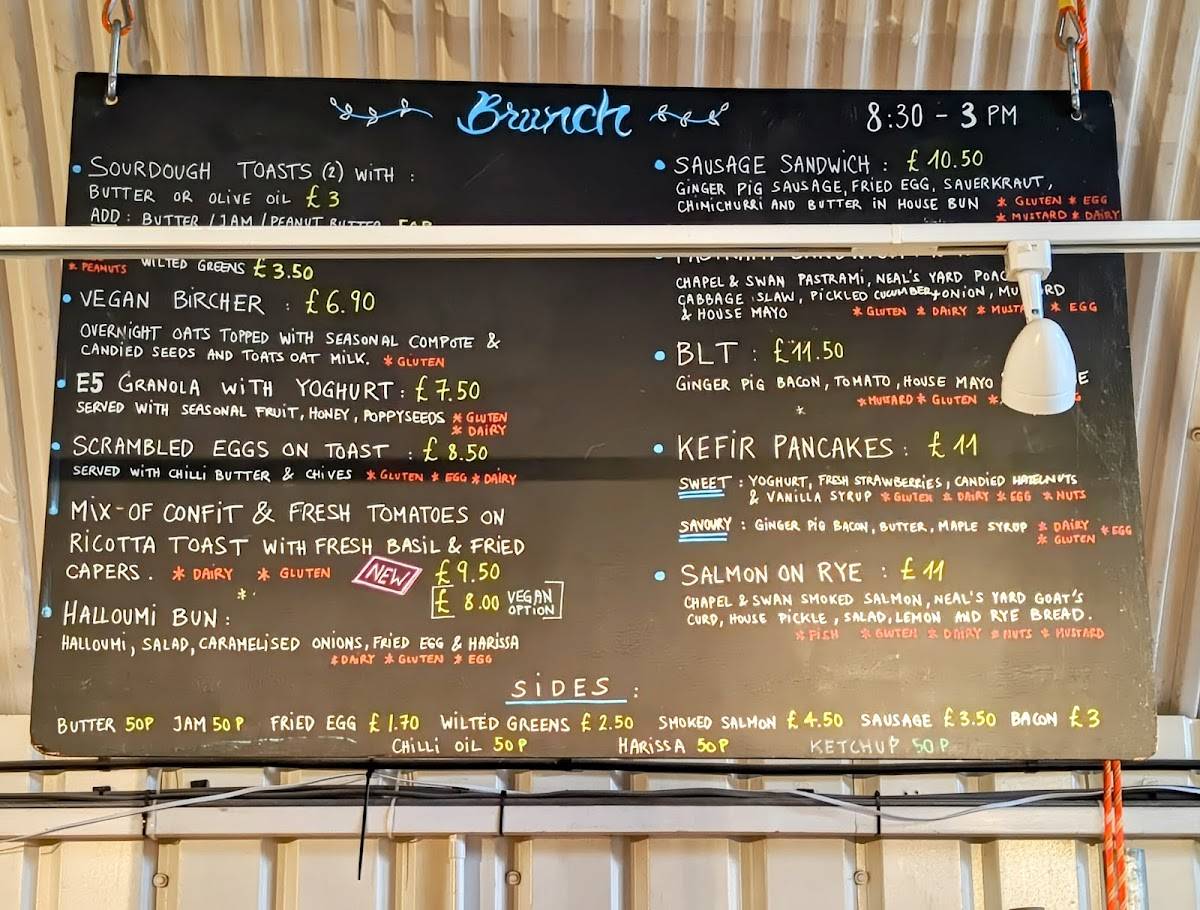 Brunch
8:30 - 3 PM
SOURDOUGH TOASTS (2) WITH :
BUTTER OR OLIVE OIL £3
ADD : BUTTER / JAM / PEANUT BUTTER
* PEANUTS WILTED GREENS £3.50
VEGAN BIRCHER : £6.90
OVERNIGHT OATS TOPPED WITH SEASONAL COMPOTE &
CANDIED SEEDS AND TOATS OAT MILK. * GLUTEN
E5 GRANOLA WITH YOGHURT : £7.50
SERVED WITH SEASONAL FRUIT, HONEY, POPPYSEEDS * GLUTEN
* DAIRY
SCRAMBLED EGGS ON TOAST : £8.50
SERVED WITH CHILLI BUTTER & CHIVES * GLUTEN * EGG * DAIRY
MIX-OF CONFIT & FRESH TOMATOES ON
RICOTTA TOAST WITH FRESH BASIL & FRIED
CAPERS. * DAIRY * GLUTEN NEW £9.50
£8.00 VEGAN OPTION
HALLOUMI BUN :
HALLOUMI, SALAD, CARAMELISED ONIONS, FRIED EGG & HARISSA
* DAIRY * GLUTEN * EGG
SAUSAGE SANDWICH : £10.50
GINGER PIG SAUSAGE, FRIED EGG, SAUERKRAUT,
CHIMICHURRI AND BUTTER IN HOUSE BUN * GLUTEN * EGG
* MUSTARD * DAIRY
CHAPEL & SWAN PASTRAMI, NEAL'S YARD
CABBAGE SLAW, PICKLED CUCUMBER, ONION,
& HOUSE MAYO * GLUTEN * DAIRY * EGG
BLT : £11.50
GINGER PIG BACON, TOMATO, HOUSE MAYO
* MUSTARD * GLUTEN *
KEFIR PANCAKES : £11
SWEET : YOGHURT, FRESH STRAWBERRIES, CANDIED HAZELNUTS
& VANILLA SYRUP * GLUTEN * DAIRY * EGG * NUTS
SAVOURY : GINGER PIG BACON, BUTTER, MAPLE SYRUP * DAIRY * EGG
* GLUTEN
SALMON ON RYE : £11
CHAPEL & SWAN SMOKED SALMON, NEAL'S YARD GOAT'S
CURD, HOUSE PICKLE, SALAD, LEMON AND RYE BREAD.
* FISH * GLUTEN * DAIRY * NUTS * MUSTARD
SIDES :
BUTTER 50P JAM 50P FRIED EGG £1.70 WILTED GREENS £2.50 SMOKED SALMON £4.50 SAUSAGE £3.50 BACON £3
CHILLI OIL 50P HARISSA 50P KETCHUP 50P